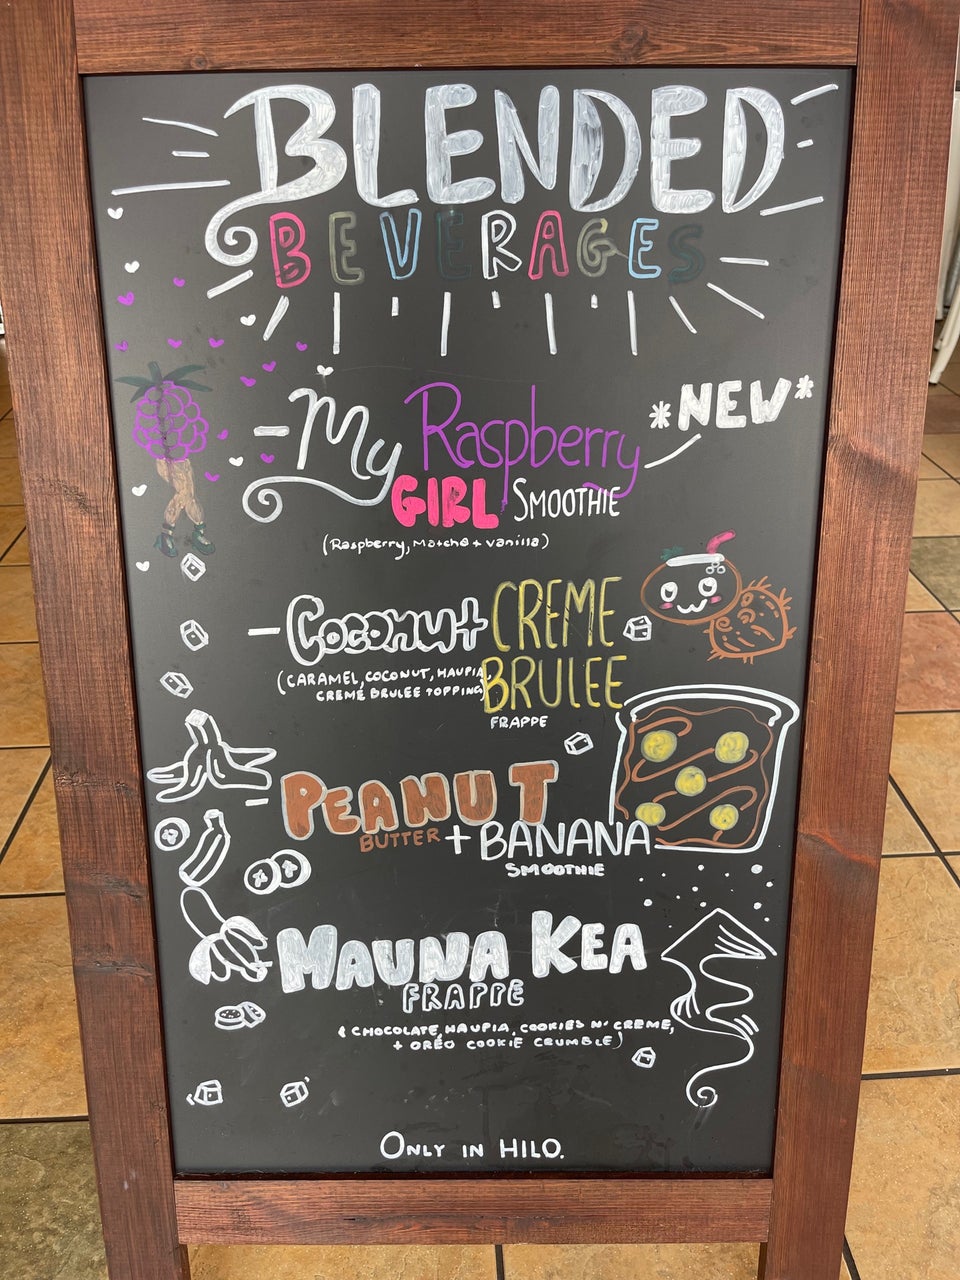 BLENDED
BEVERAGES
*NEW*
- My Raspberry
GIRL SMOOTHIE
(Raspberry, Matcha + vanilla)
- Coconut CREME
BRULEE
(CARAMEL, COCONUT, HAUPIA,
CREME BRULEE TOPPING)
FRAPPE
- PEANUT
BUTTER + BANANA
SMOOTHIE
- MAUNA KEA
FRAPPE
(CHOCOLATE, HAUPIA, COOKIES N' CREME,
+ OREO COOKIE CRUMBLE)
ONLY IN HILO.